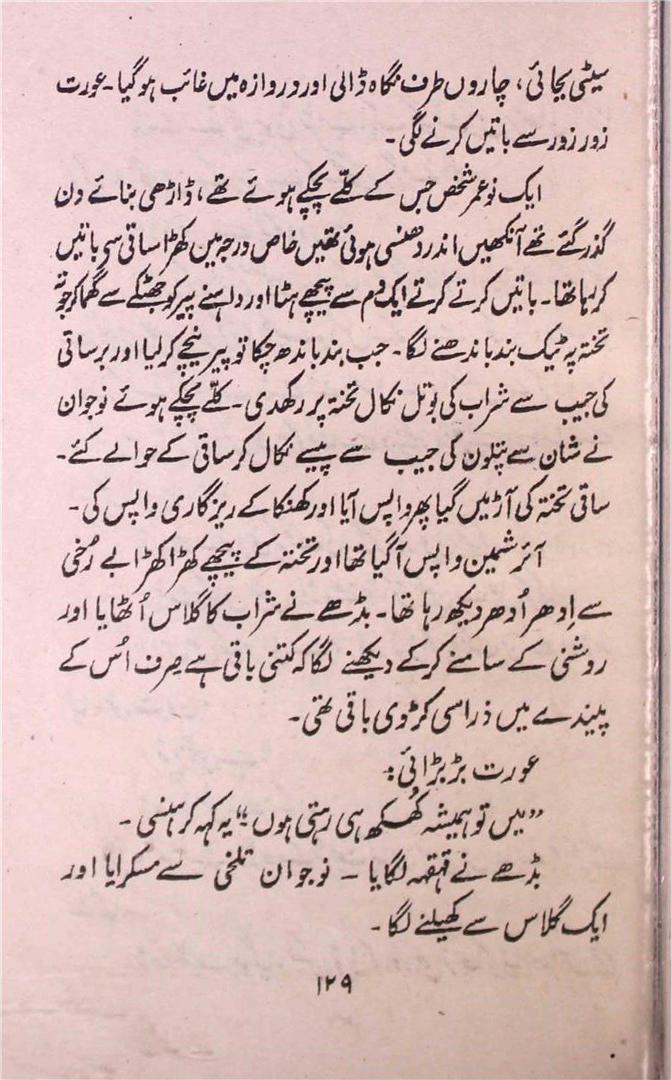 سیٹی بجائی، چاروں طرف نگاہ ڈالی اور دروازہ میں غائب ہوگیا۔ عورت
زور زور سے باتیں کرنے لگی۔
ایک نوعمر شخص جس کے کلّے پچکے ہوئے تھے، ڈاڑھی بنائے دن
گذر گئے تھے آنکھیں اندر دھنسی ہوئی تھیں خاص درجہ میں کھڑا ساقی سی باتیں
کر رہا تھا۔ باتیں کرتے کرتے ایک دم سے پیچھے ہٹا اور داہنے پیر کو جھٹکے سے گھما کر جوتہ
تختہ پہ ٹیک بند باندھنے لگا۔ جب بند باندھ چکا تو پیر نیچے کرلیا اور برساتی
کی جیب سے شراب کی بوتل نکال تختہ پر رکھدی۔ کلّے پچکے ہوئے نوجوان
نے شان سے پتلون کی جیب سے پیسے نکال کر ساقی کے حوالے کئے۔
ساقی تختہ کی آڑ میں گیا پھر واپس آیا اور کھنکا کے ریزگاری واپس کی۔
آئرشمین واپس آگیا تھا اور تختہ کے پیچھے کھڑا کھڑا بے رُخی
سے اِدھر اُدھر دیکھ رہا تھا۔ بڈھے نے شراب کا گلاس اُٹھایا اور
روشنی کے سامنے کرکے دیکھنے لگا کہ کتنی باقی ہے صِرف اُس کے
پیندے میں ذراسی کڑوی باقی تھی۔
عورت بڑبڑائی:
”میں تو ہمیشہ کُھکھ ہی رہتی ہوں“ یہ کہہ کر ہنسی۔
بڈھے نے قہقہہ لگایا۔ نوجوان تلخی سے مسکرایا اور
ایک گلاس سے کھیلنے لگا۔
۱۲۹